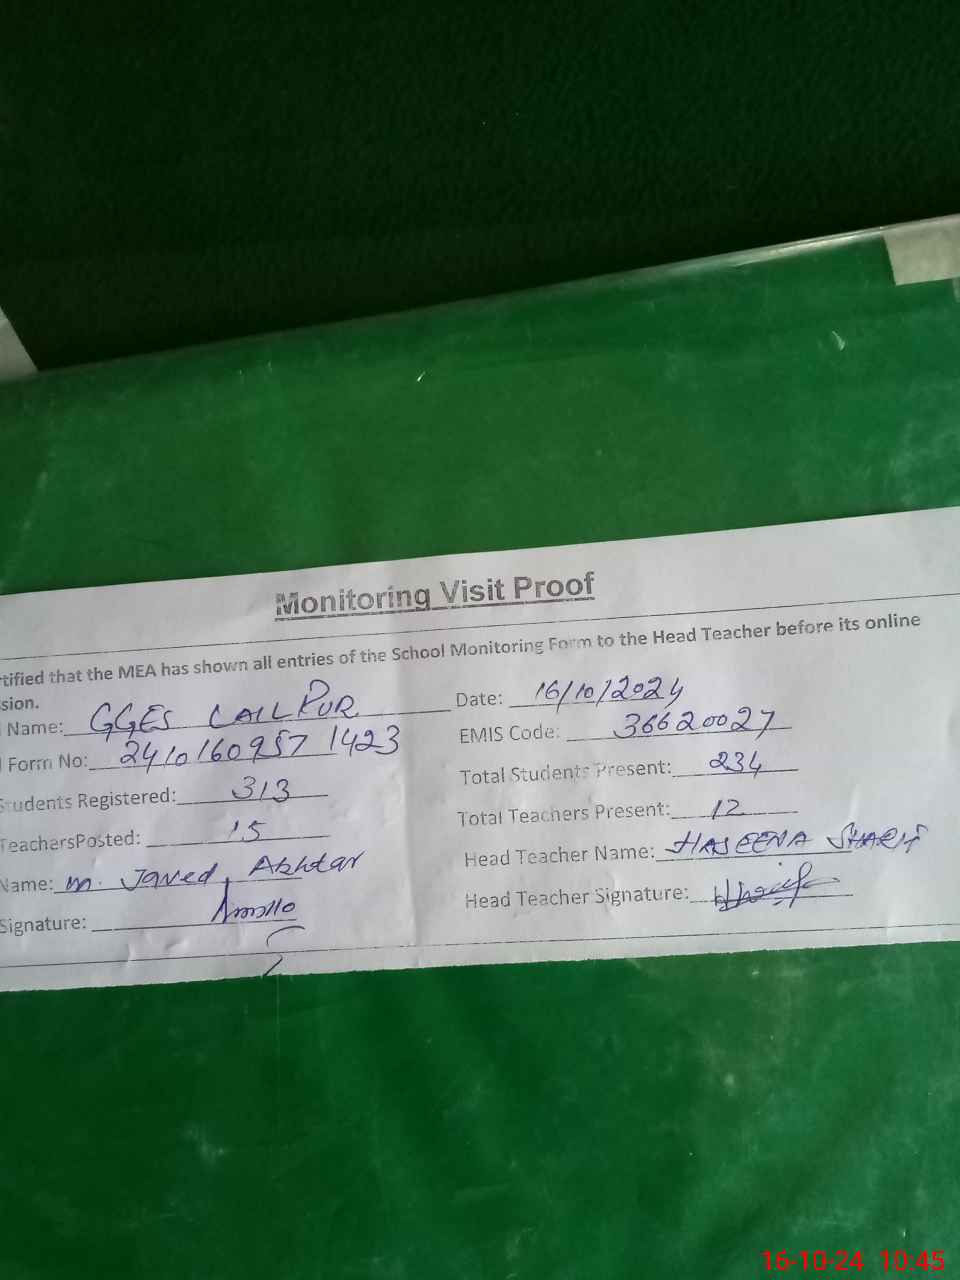 Monitoring Visit Proof
rtified that the MEA has shown all entries of the School Monitoring Form to the Head Teacher before its online
sion.
Name: GGES LALLPUR Date: 16/10/2024
Form No: 2410160957 1423 EMIS Code: 36620027
Students Registered: 313 Total Students Present: 234
TeachersPosted: 15 Total Teachers Present: 12
Name: M. Javed Akhtar Head Teacher Name: HASEENA SHARIF
Signature: Head Teacher Signature:
16-10-24 10:45